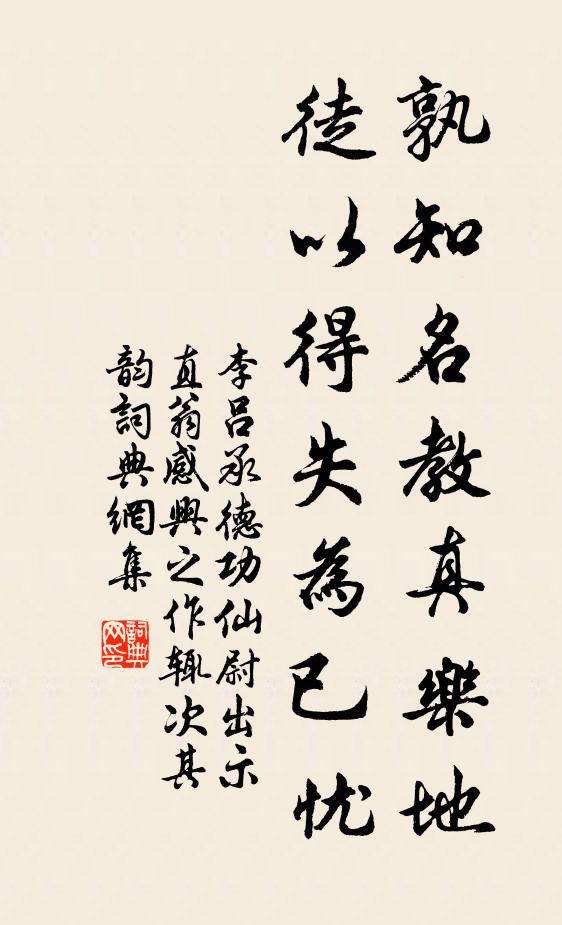 孰知名教真樂地
徒以得失為已忧
李吕承德功仙尉出示
直翁感興之作輒次其
韵詞典網集
詞典網印